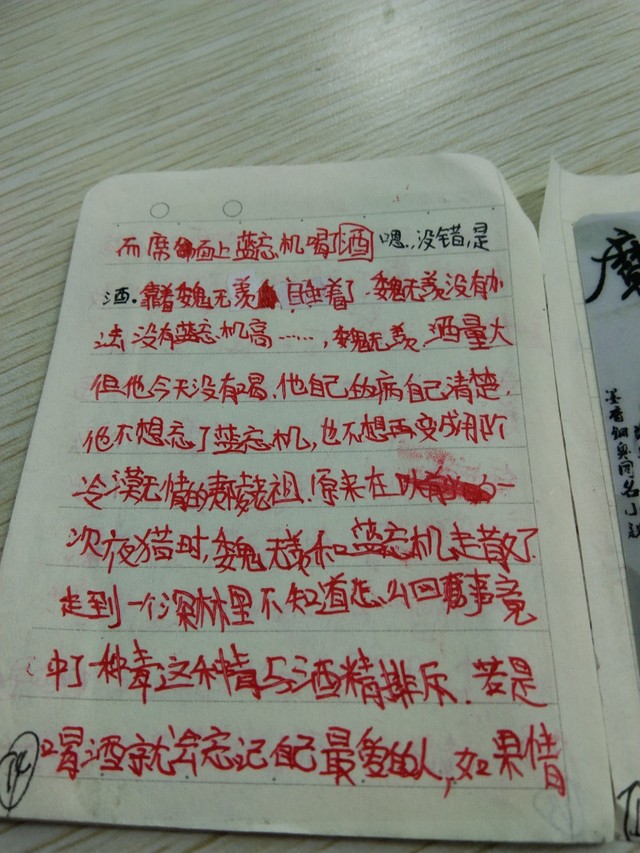 而席面上蓝忘机喝了酒 嗯..没错,是
酒.靠着魏无羡 自睡着了.魏无羡没有办
法,没有蓝忘机高……,魏无羡.酒量大
但他今天没有喝.他自己的病自己清楚,
他不想忘了蓝忘机,也不想再变成那阶
冷漠无情的夷陵老祖.原来在 一
次夜猎时,魏无羡和蓝忘机走散了.
走到一个深林里不知道怎么回事竟
中了一种毒这种毒与酒精排斥.若是
喝酒就会忘记自己最爱的人,如果情
14
魔
墨香铜臭同名小说